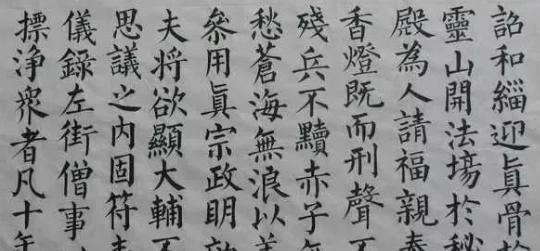 詔和緇迎眞骨於
靈山開法塲於秘
殿為人請福親奉
香燈既而刑聲不
殘兵不黷赤子無
愁蒼海無浪以蓋
叅用眞宗政明效
夫将欲顯大輔不
思議之内固符
儀錄左街僧事
摽淨衆者凡十年